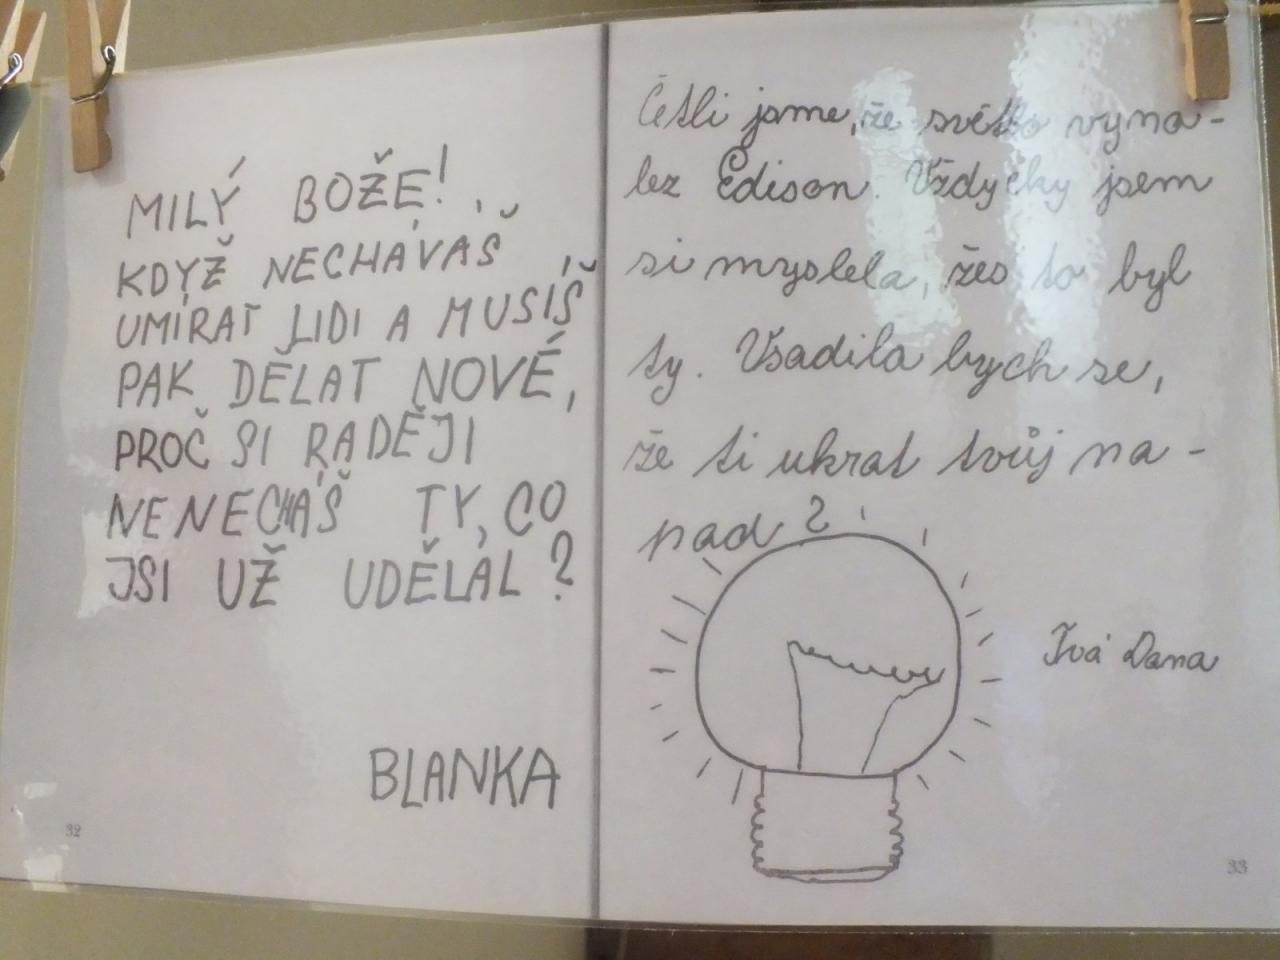 MILÝ BOŽE!
KDYŽ NECHÁVÁŠ
UMÍRAT LIDI A MUSÍŠ
PAK DĚLAT NOVÉ,
PROČ SI RADĚJI
NENECHÁŠ TY, CO
JSI UŽ UDĚLAL?
BLANKA
32
Četli jsme, že světlo vyna-
lez Edison. Vždycky jsem
si myslela, žes to byl
ty. Vsadila bych se,
že ti ukrat tvůj na-
pad?
Tvá Dana
33